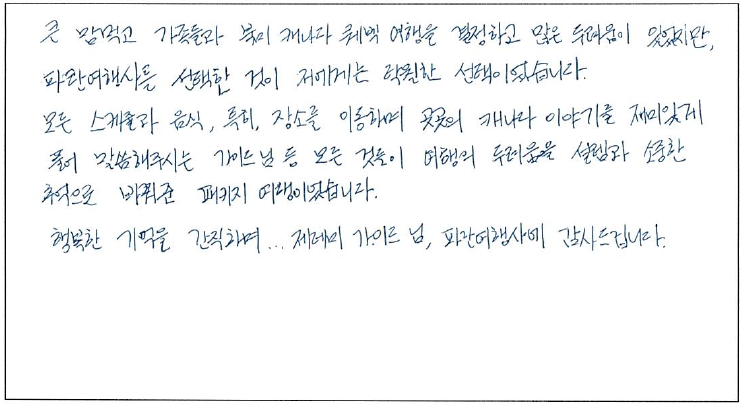 큰 맘먹고 가족들과 북미 캐나다 퀘벡 여행을 결정하고 많은 두려움이 있었지만,
파란여행사를 선택한 것이 저에게는 탁월한 선택이었습니다.
모든 스케줄과 음식, 특히, 장소를 이동하며 곳곳의 캐나다 이야기를 재미있게
풀어 말씀해주시는 가이드님 등 모든 것들이 여행의 두려움을 설렘과 소중한
추억으로 바꿔준 패키지 여행이었습니다.
행복한 기억을 간직하며... 제레미 가이드 님, 파란여행사에 감사드립니다.